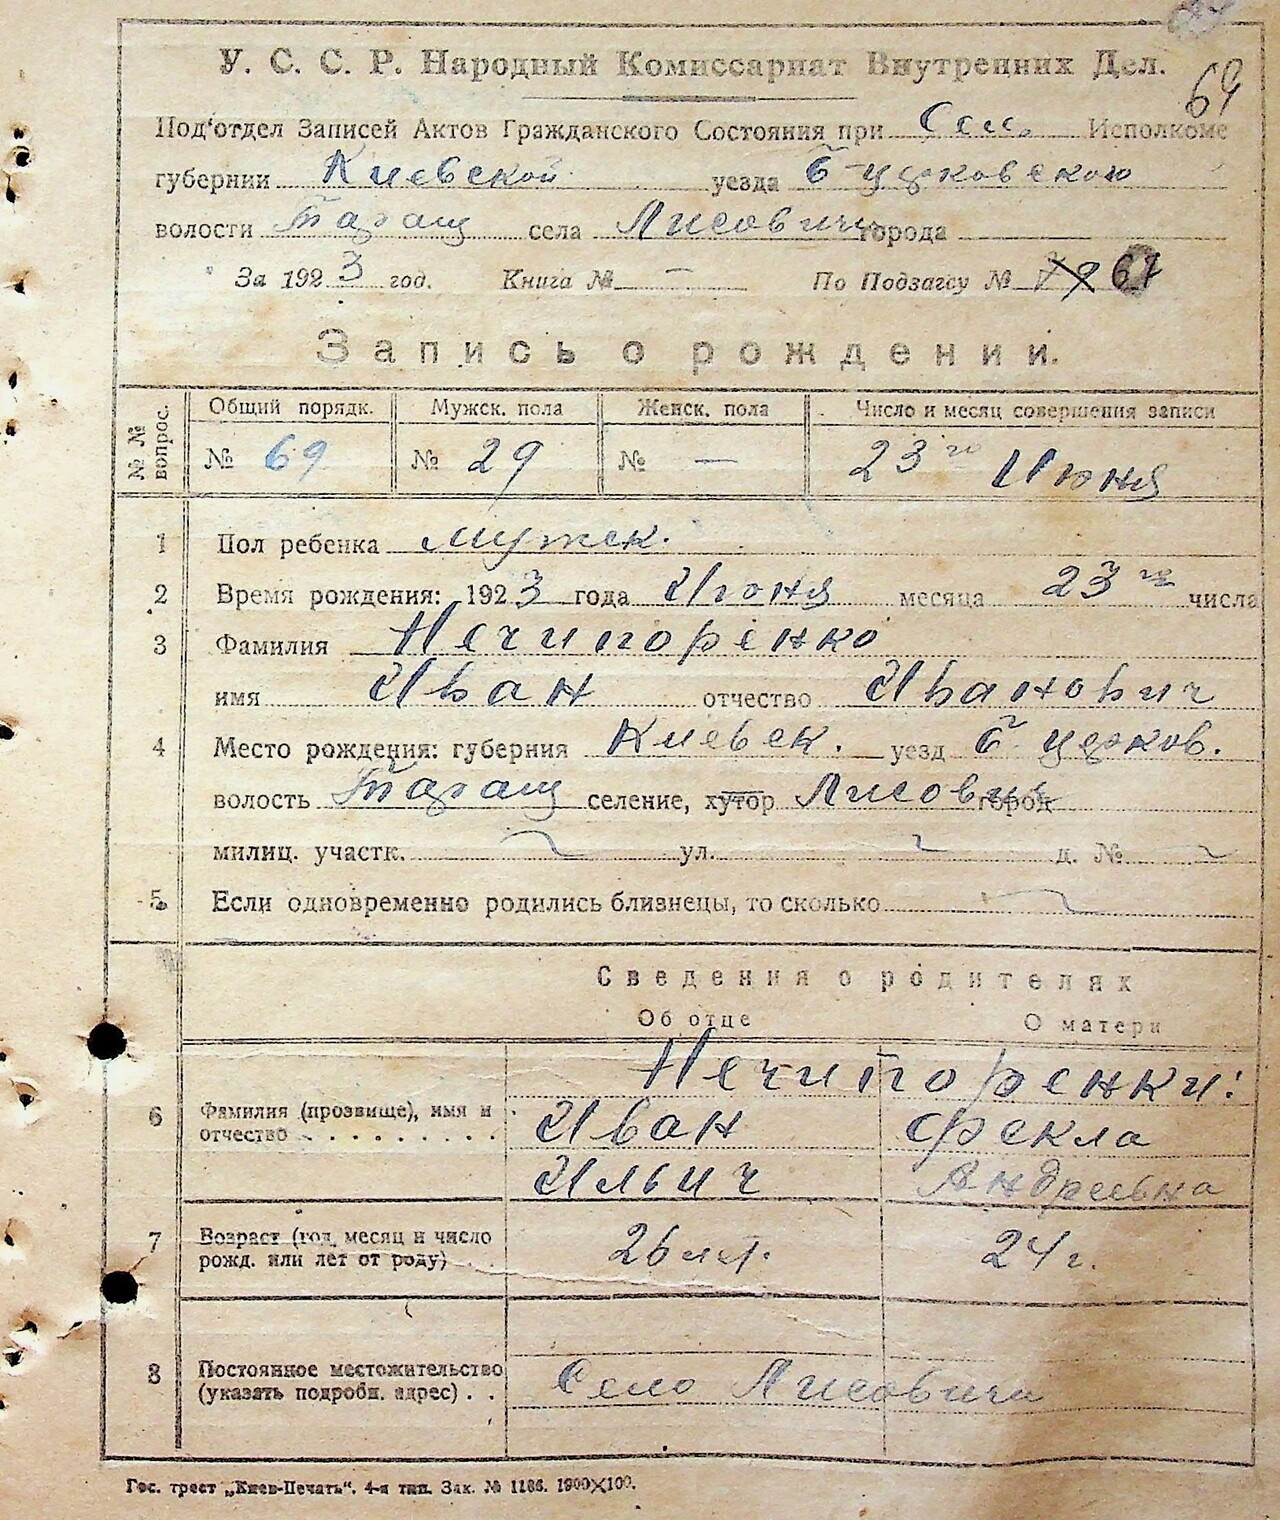 64
У. С. С. Р. Народный Комиссариат Внутренних Дел.
Под'отдел Записей Актов Гражданского Состояния при Сел. Исполкоме
губернии Киевской уезда Б-церковского
волости Таращ села Лисовичи города
За 1923 год. Книга № — По Подзагсу № 67
Запись о рождении.
№№ вопрос.
Общий порядк. Мужск. пола Женск. пола Число и месяц совершения записи
№ 69 № 29 № — 23го Июня
1 Пол ребенка мужск.
2 Время рождения: 1923 года Июня месяца 23го числа
3 Фамилия Нечипоренко
имя Иван отчество Иванович
4 Место рождения: губерния Киевск. уезд Б-церков.
волость Таращ селение, хутор Лисовичи город
милиц. участк. ул. д. №
5 Если одновременно родились близнецы, то сколько
Сведения о родителях
Об отце О матери
Нечипоренки:
6 Фамилия (прозвище), имя и Иван Фекла
отчество . . . . . . . . . Ильич Андреевна
7 Возраст (год, месяц и число 26 лет. 24 г.
рожд. или лет от роду) . .
8 Постоянное местожительство Село Лисовичи
(указать подробн. адрес) . .
Гос. трест „Киев-Печать“. 4-я тип. Зак. № 1186. 1900×100.